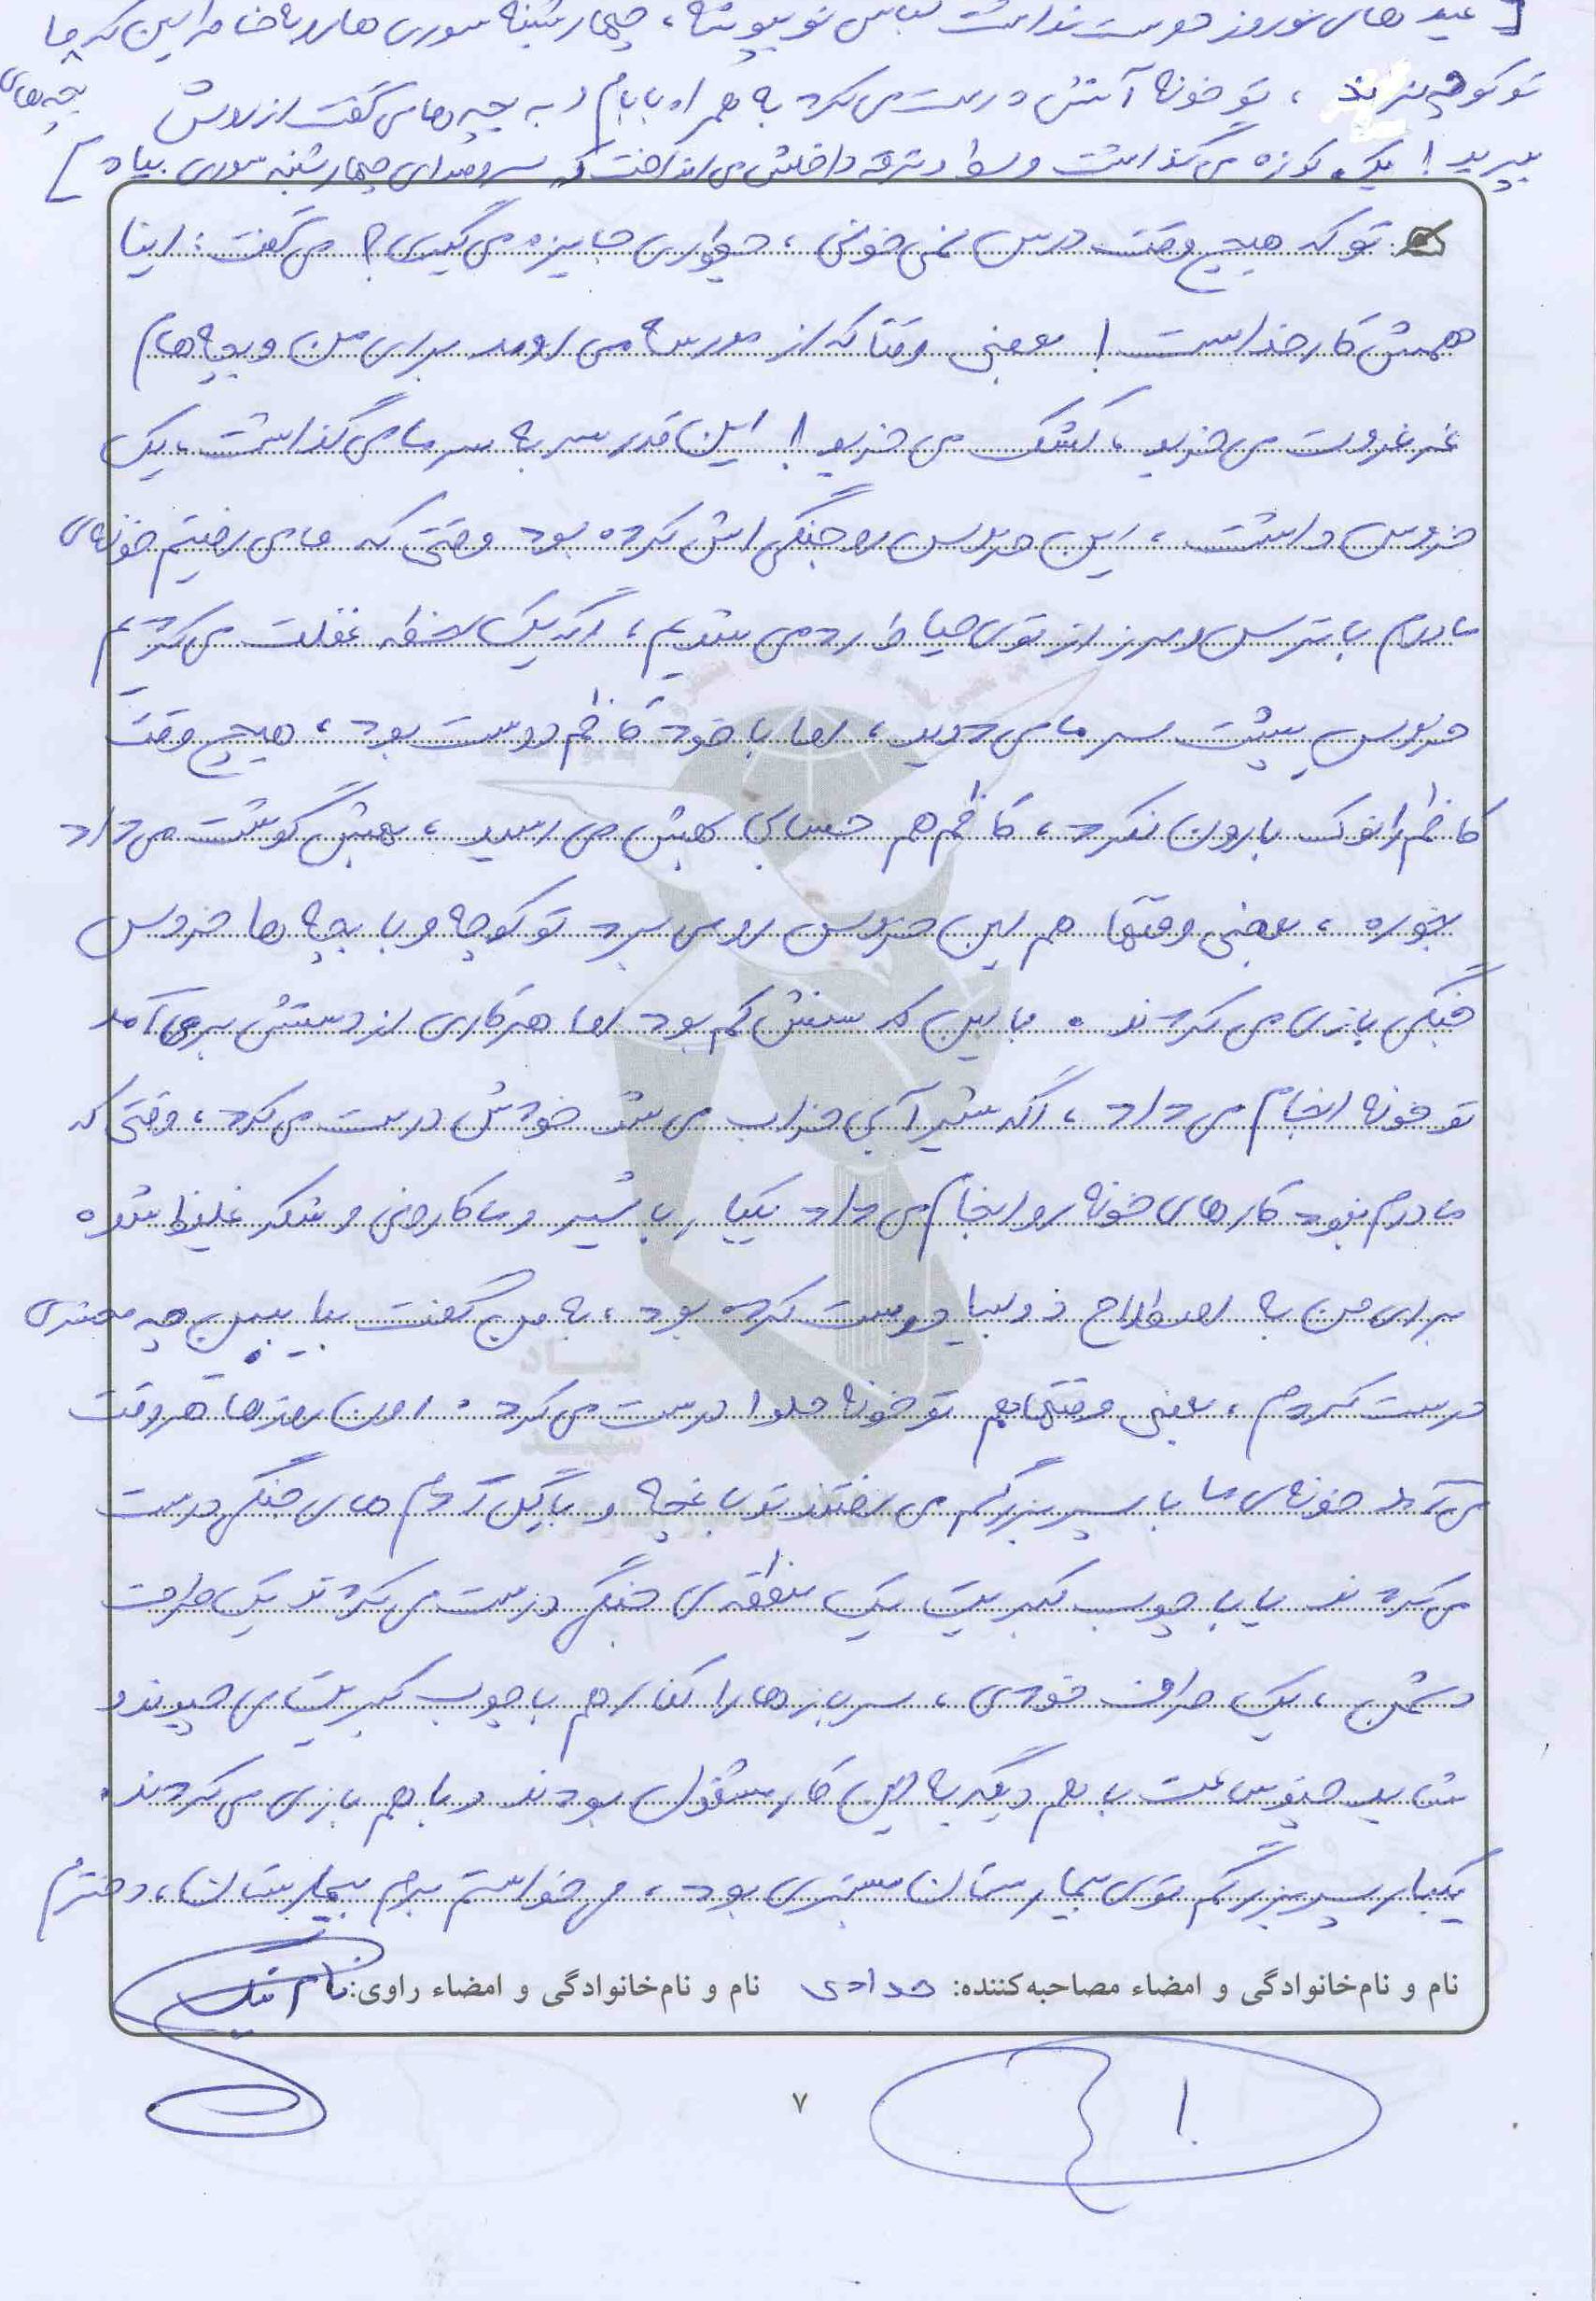 [ عید های نوروز دوست نداشت لباس نو بپوشه ، چهارشنبه سوری ها به خاطر این که ما
تو کوچه نریم ، تو خونه آتش درست می کرد به همراه بابام و به بچه ها می گفت از روش بچه های
بپرید ! یک کوزه می گذاشت وسط و ترقه داخلش می انداخت که سر و صدای چهارشنبه سوری بیاد ]
تو که هیچ وقت درس نمی خونی ، چطوری جایزه می گیری ؟ می گفت : اینا
همش کار خداست ! بعضی وقتا که از مدرسه می اومد برای من و بچه هام
غرغروت می خرید ، کشک می خرید ! این قدر سر به سر ما می گذاشت ، یک
خروس داشت ، این خروس رو جنگی اش کرده بود وقتی که ما می رفتیم خونه ی
مادرم با ترس و لرز از توی حیاط رد می شدیم ، اگه یک لحظه غفلت می کردیم
خروس پشت سر ما می دوید ، اما با خود کاظم دوست بود ، هیچ وقت
کاظم را نوک بارون نکرد ، کاظم هم حسابی بهش می رسید ، بهش گوشت می داد
بخوره ، بعضی وقتها هم این خروس رو می برد تو کوچه و با بچه ها خروس
جنگی بازی می کردند . با این که سنش کم بود اما هر کاری از دستش بر می آمد
تو خونه انجام می داد ، اگه شیر آبی خراب می شد خودش درست می کرد ، وقتی که
مادرم نبود کارهای خونه رو انجام می داد یکبار با شیر و ماکارونی و شکر غلیظ شده
برای من به اصطلاح ژوبیا درست کرده بود ، به من گفت بیا ببین چه چیزی
درست کردم ، بعضی وقتها هم تو خونه حلوا درست می کرد . اون روزها هر وقت
می آمد خونه ی ما با پسر بزرگم می رفتند تو باغچه و با گل آدم های جنگی درست
می کردند یا با چوب کبریت یک منطقه ی جنگی درست می کردند یک طرف
دشمن ، یک طرف خودی ، سربازها را کنار هم با چوب کبریت می چیدند و
شاید چند ساعت با هم دیگه به این کار مشغول بودند و با هم بازی می کردند .
یکبار پسر بزرگم توی بیمارستان بستری بود ، می خواستم برم بیمارستان ، دخترم
نام و نام‌خانوادگی و امضاء مصاحبه‌کننده: حدادی نام و نام‌خانوادگی و امضاء راوی:
۷